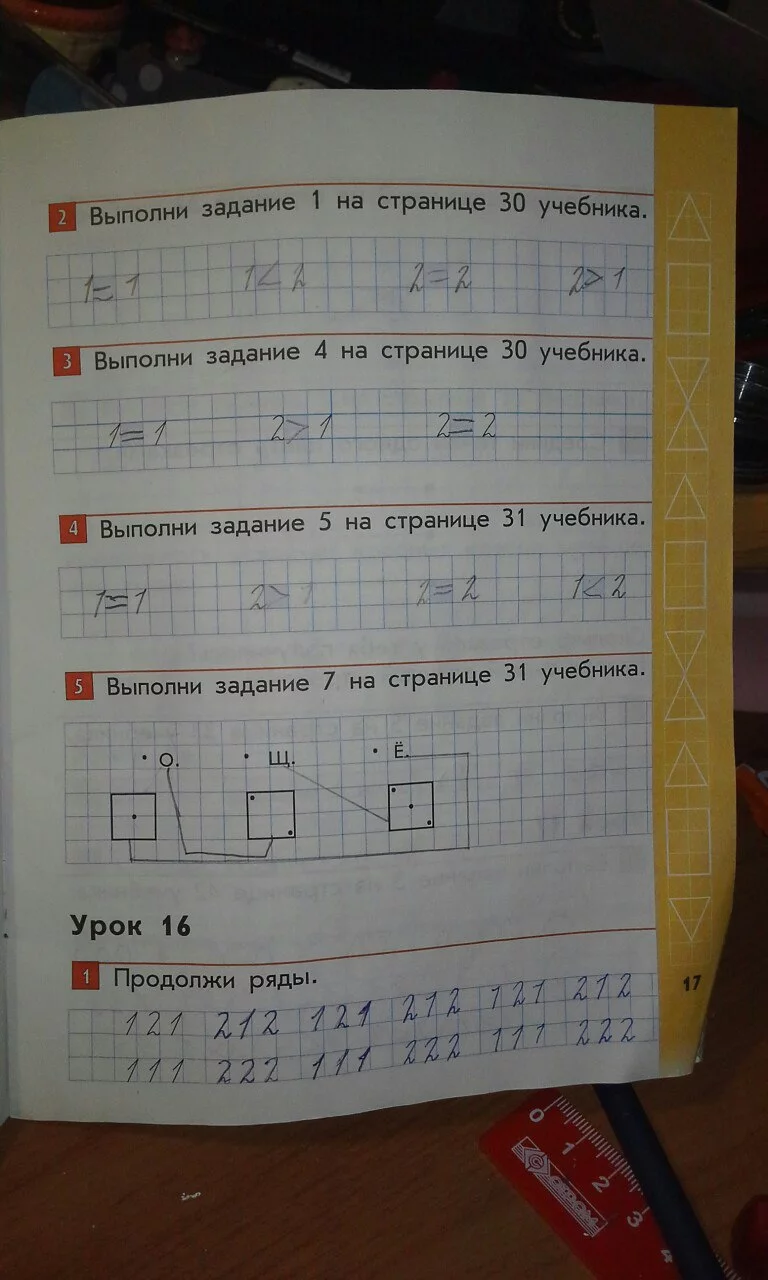 2 Выполни задание 1 на странице 30 учебника.
1=1 1<2 2=2 2>1
3 Выполни задание 4 на странице 30 учебника.
1=1 2>1 2=2
4 Выполни задание 5 на странице 31 учебника.
1=1 2>1 2=2 1<2
5 Выполни задание 7 на странице 31 учебника.
• О. • Щ. • Ё.
Урок 16
1 Продолжи ряды.
17
121 212 121 212 121 212
111 222 111 222 111 222
0 1 2 3 4